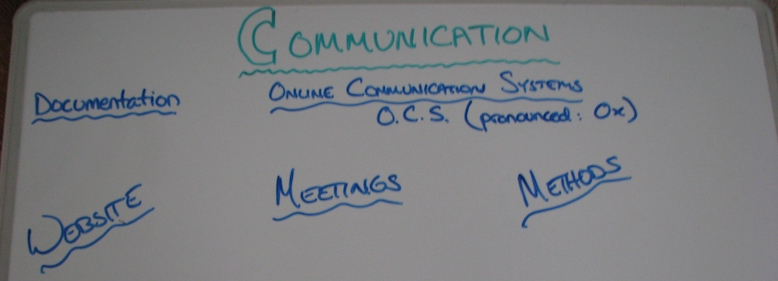 COMMUNICATION
Documentation
ONLINE COMMUNICATION SYSTEMS
O.C.S. (pronounced: Ox)
WEBSITE
MEETINGS
METHODS